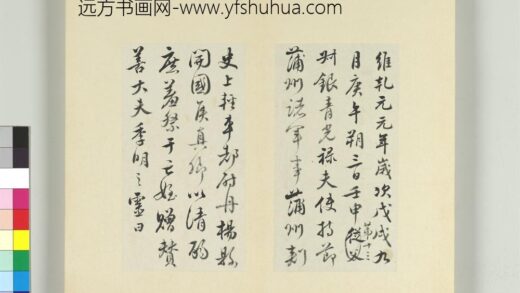 远方书画网-www.yfshuhua.com
維乹元元年歲次戊戌九
月庚午朔三日壬申從父
第十三
叔銀青光祿夫使持節
蒲州諸軍事蒲州刺
史上輕車都尉丹楊縣
開國侯真卿以清酌
庶羞祭于亡姪贈贊
善大夫季明之靈曰